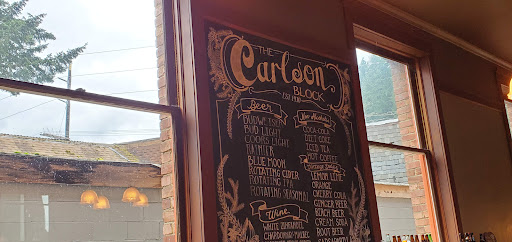 THE
Carlson
BLOCK
Beer
BUDWEISER
BUD LIGHT
COORS LIGHT
RAINIER
BLUE MOON
ROTATING CIDER
ROTATING IPA
ROTATING SEASONAL
Wine
WHITE ZINFANDEL
Non Alcoholic
COCA-COLA
DIET COKE
ICED TEA
HOT COFFEE
LEMON LIME
ORANGE
CHERRY COLA
GINGER BEER
BIRCH BEER
CREAM SODA
ROOT BEER
SARSAPARILLA